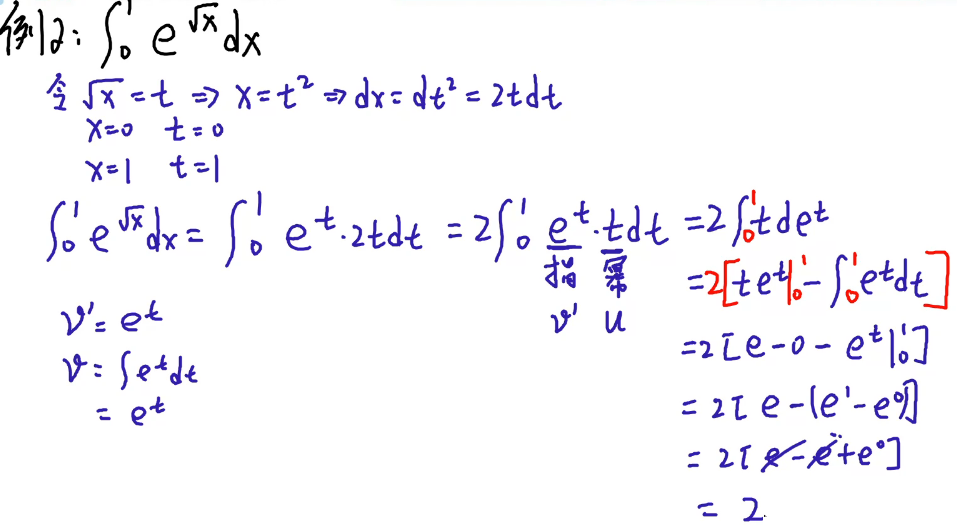 例12: ∫₀¹ e^√x dx
令 √x = t ⇒ x = t² ⇒ dx = dt² = 2tdt
x=0 t=0
x=1 t=1
∫₀¹ e^√x dx = ∫₀¹ e^t·2tdt = 2∫₀¹ e^t·tdt = 2∫₀¹ tde^t
指 幂
v' u
= 2[te^t|₀¹ - ∫₀¹ e^t dt]
= 2[e - 0 - e^t|₀¹]
= 2[e - (e¹ - e⁰)]
= 2[e - e + e⁰]
= 2
v' = e^t
v = ∫e^t dt
= e^t